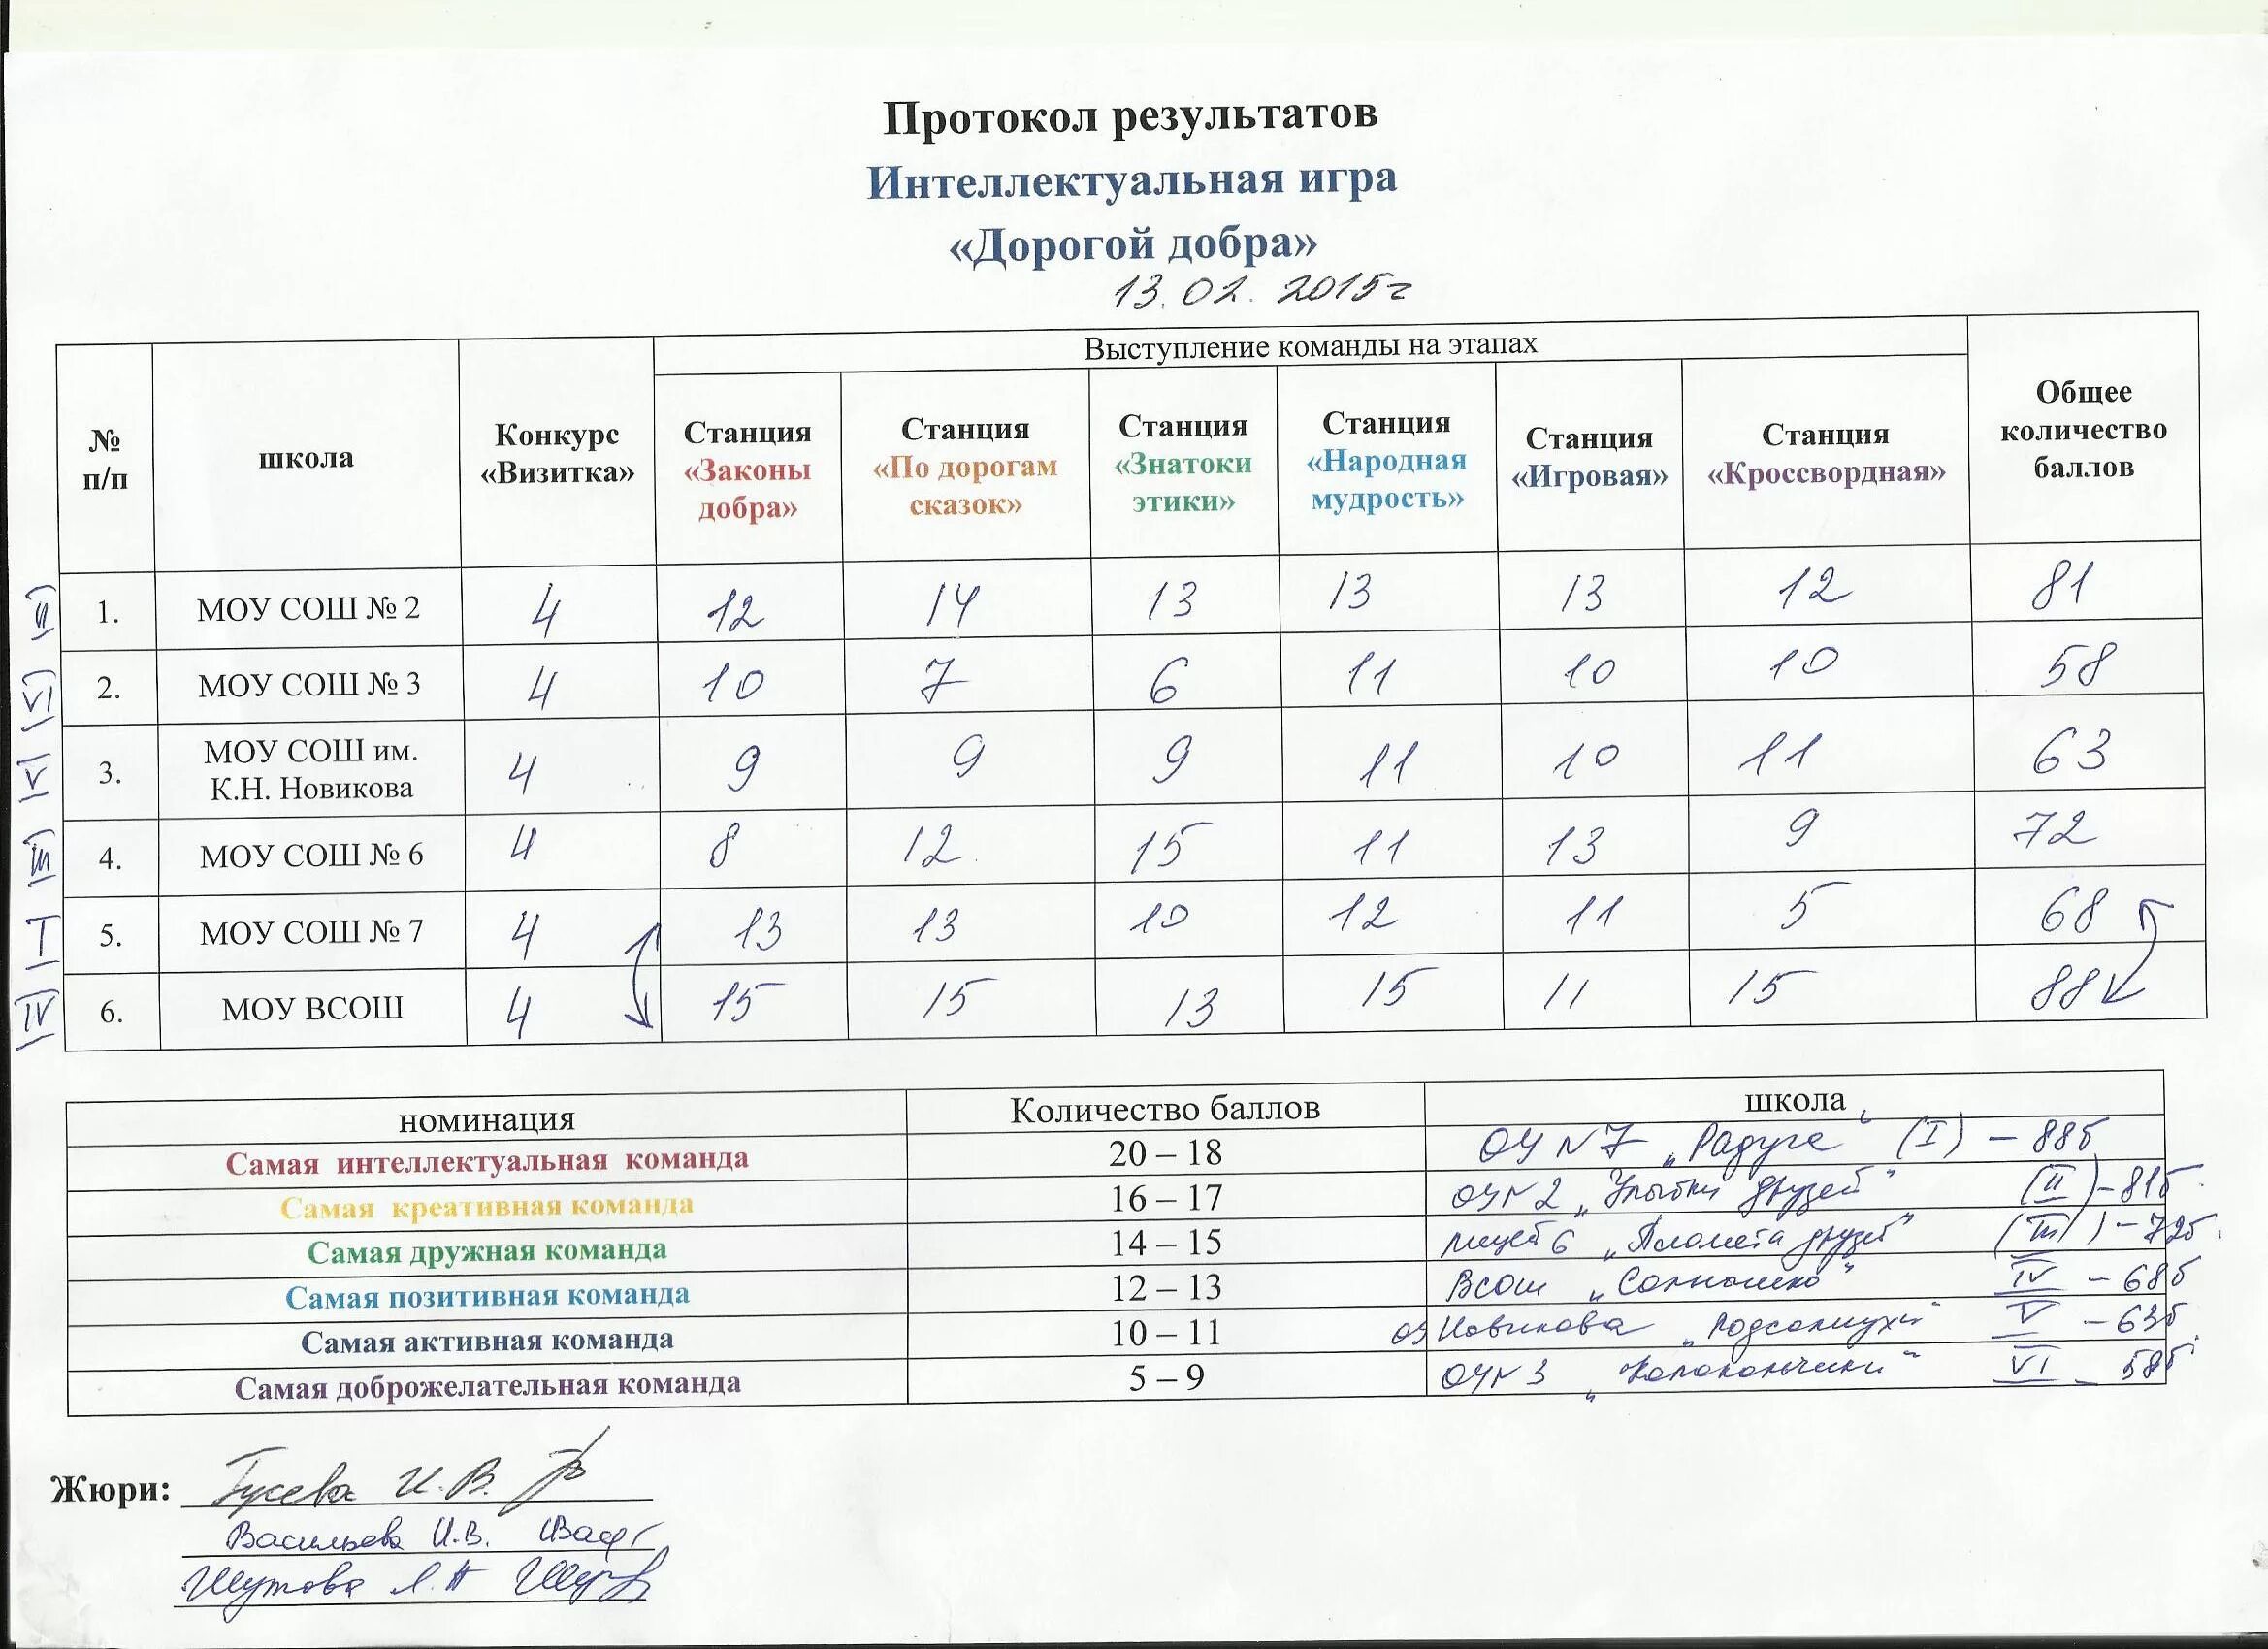 Протокол результатов
Интеллектуальная игра
«Дорогой добра»
13.02.2015г
№ п/п школа Конкурс «Визитка» Выступление команды на этапах Общее количество баллов
Станция «Законы добра» Станция «По дорогам сказок» Станция «Знатоки этики» Станция «Народная мудрость» Станция «Игровая» Станция «Кроссвордная»
II 1. МОУ СОШ № 2 4 12 14 13 13 13 12 81
VI 2. МОУ СОШ № 3 4 10 7 6 11 10 10 58
V 3. МОУ СОШ им. К.Н. Новикова 4 9 9 9 11 10 11 63
III 4. МОУ СОШ № 6 4 8 12 15 11 13 9 72
I 5. МОУ СОШ № 7 4 13 13 10 12 11 5 68
IV 6. МОУ ВСОШ 4 15 15 13 15 11 15 88
номинация Количество баллов школа
Самая интеллектуальная команда 20 – 18 ОУ N 7 „Радуга“ (I) – 88б
Самая креативная команда 16 – 17 ОУ N 2 „Улыбки друзей“ (II) – 81б.
Самая дружная команда 14 – 15 лицей 6 „Планета друзей“ (III) – 72б.
Самая позитивная команда 12 – 13 ВСОШ „Солнышко“ IV – 68б
Самая активная команда 10 – 11 ОУ Новикова „Подсолнухи“ V – 63б.
Самая доброжелательная команда 5 – 9 ОУ N 3 „Колокольчики“ VI – 58б.
Жюри: Гусева И.В.
Васильева И.В.
Шутова Л.А